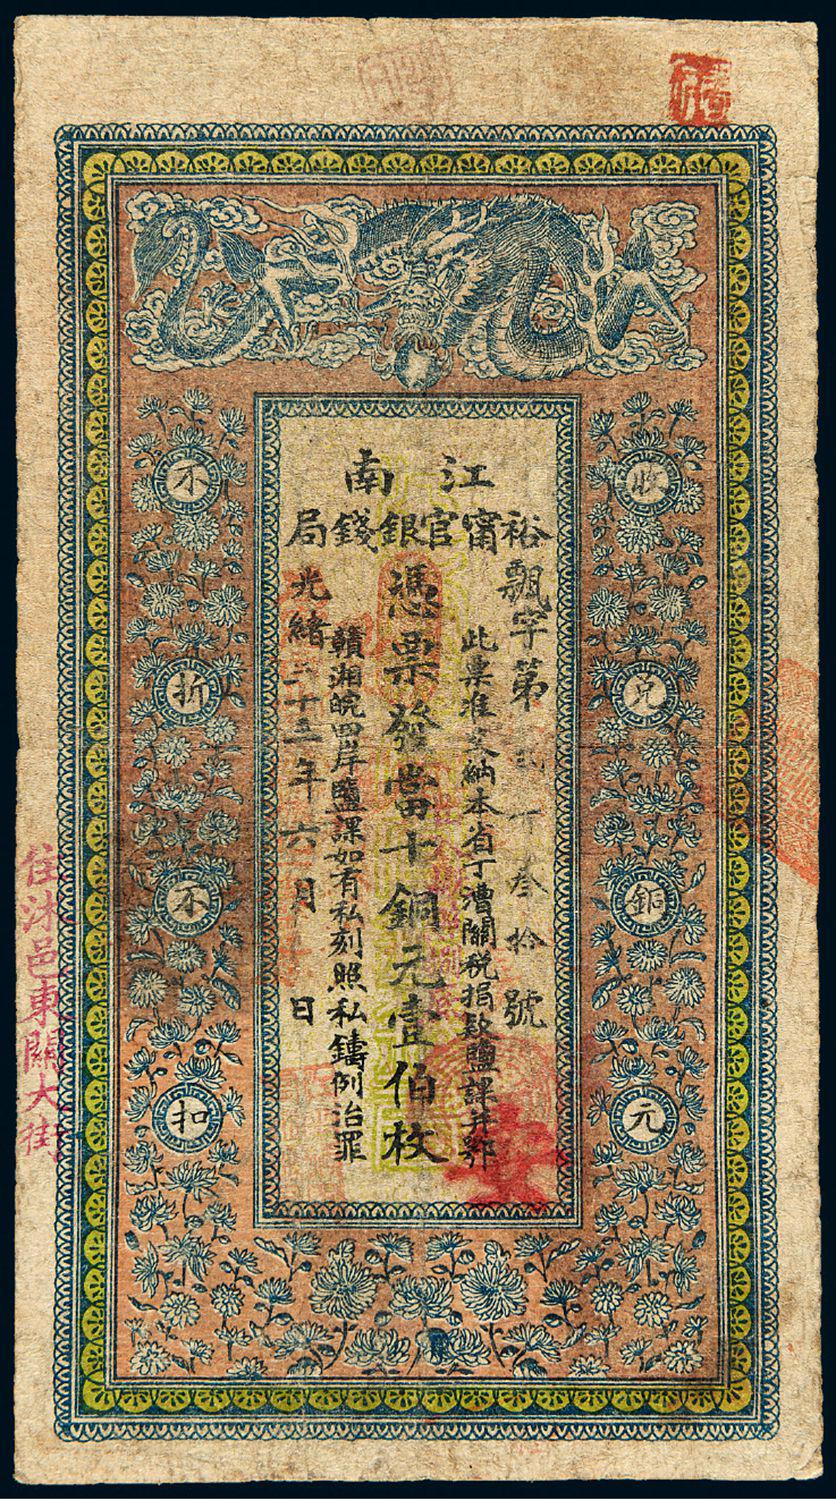 江南
裕甯官銀錢局
飄字第貳千叁拾號
此票准完納本省丁漕關稅捐欵鹽課并鄂
憑票發當十銅元壹伯枚
贛湘皖四岸鹽課如有私刻照私鑄例治罪
光緒三十三年六月 日
收兌銅元
不折不扣
住沭邑東關大街